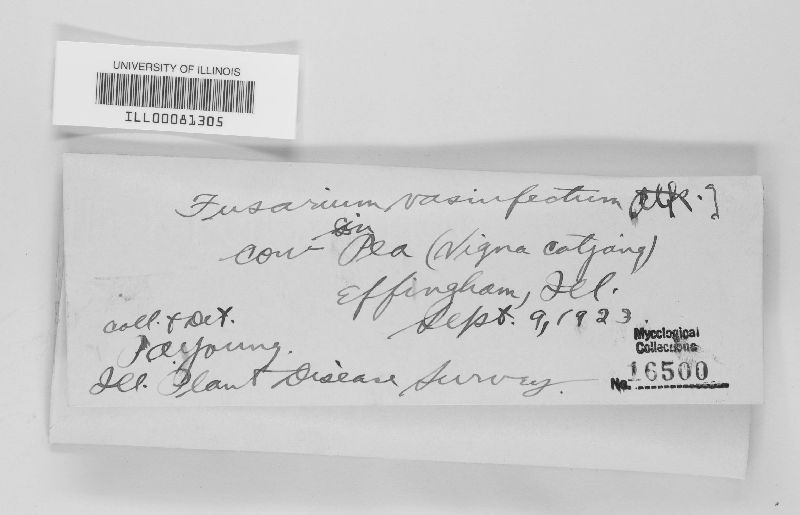 UNIVERSITY OF ILLINOIS
ILL00081305
Fusarium vasinfectum [Atk.]
in
cow Pea (Vigna catjang)
Effingham, Ill.
Sept. 9, 1923.
coll. & Det.
P.A. Young.
Ill. Plant Disease Survey.
Mycological
Collections
No. 16500